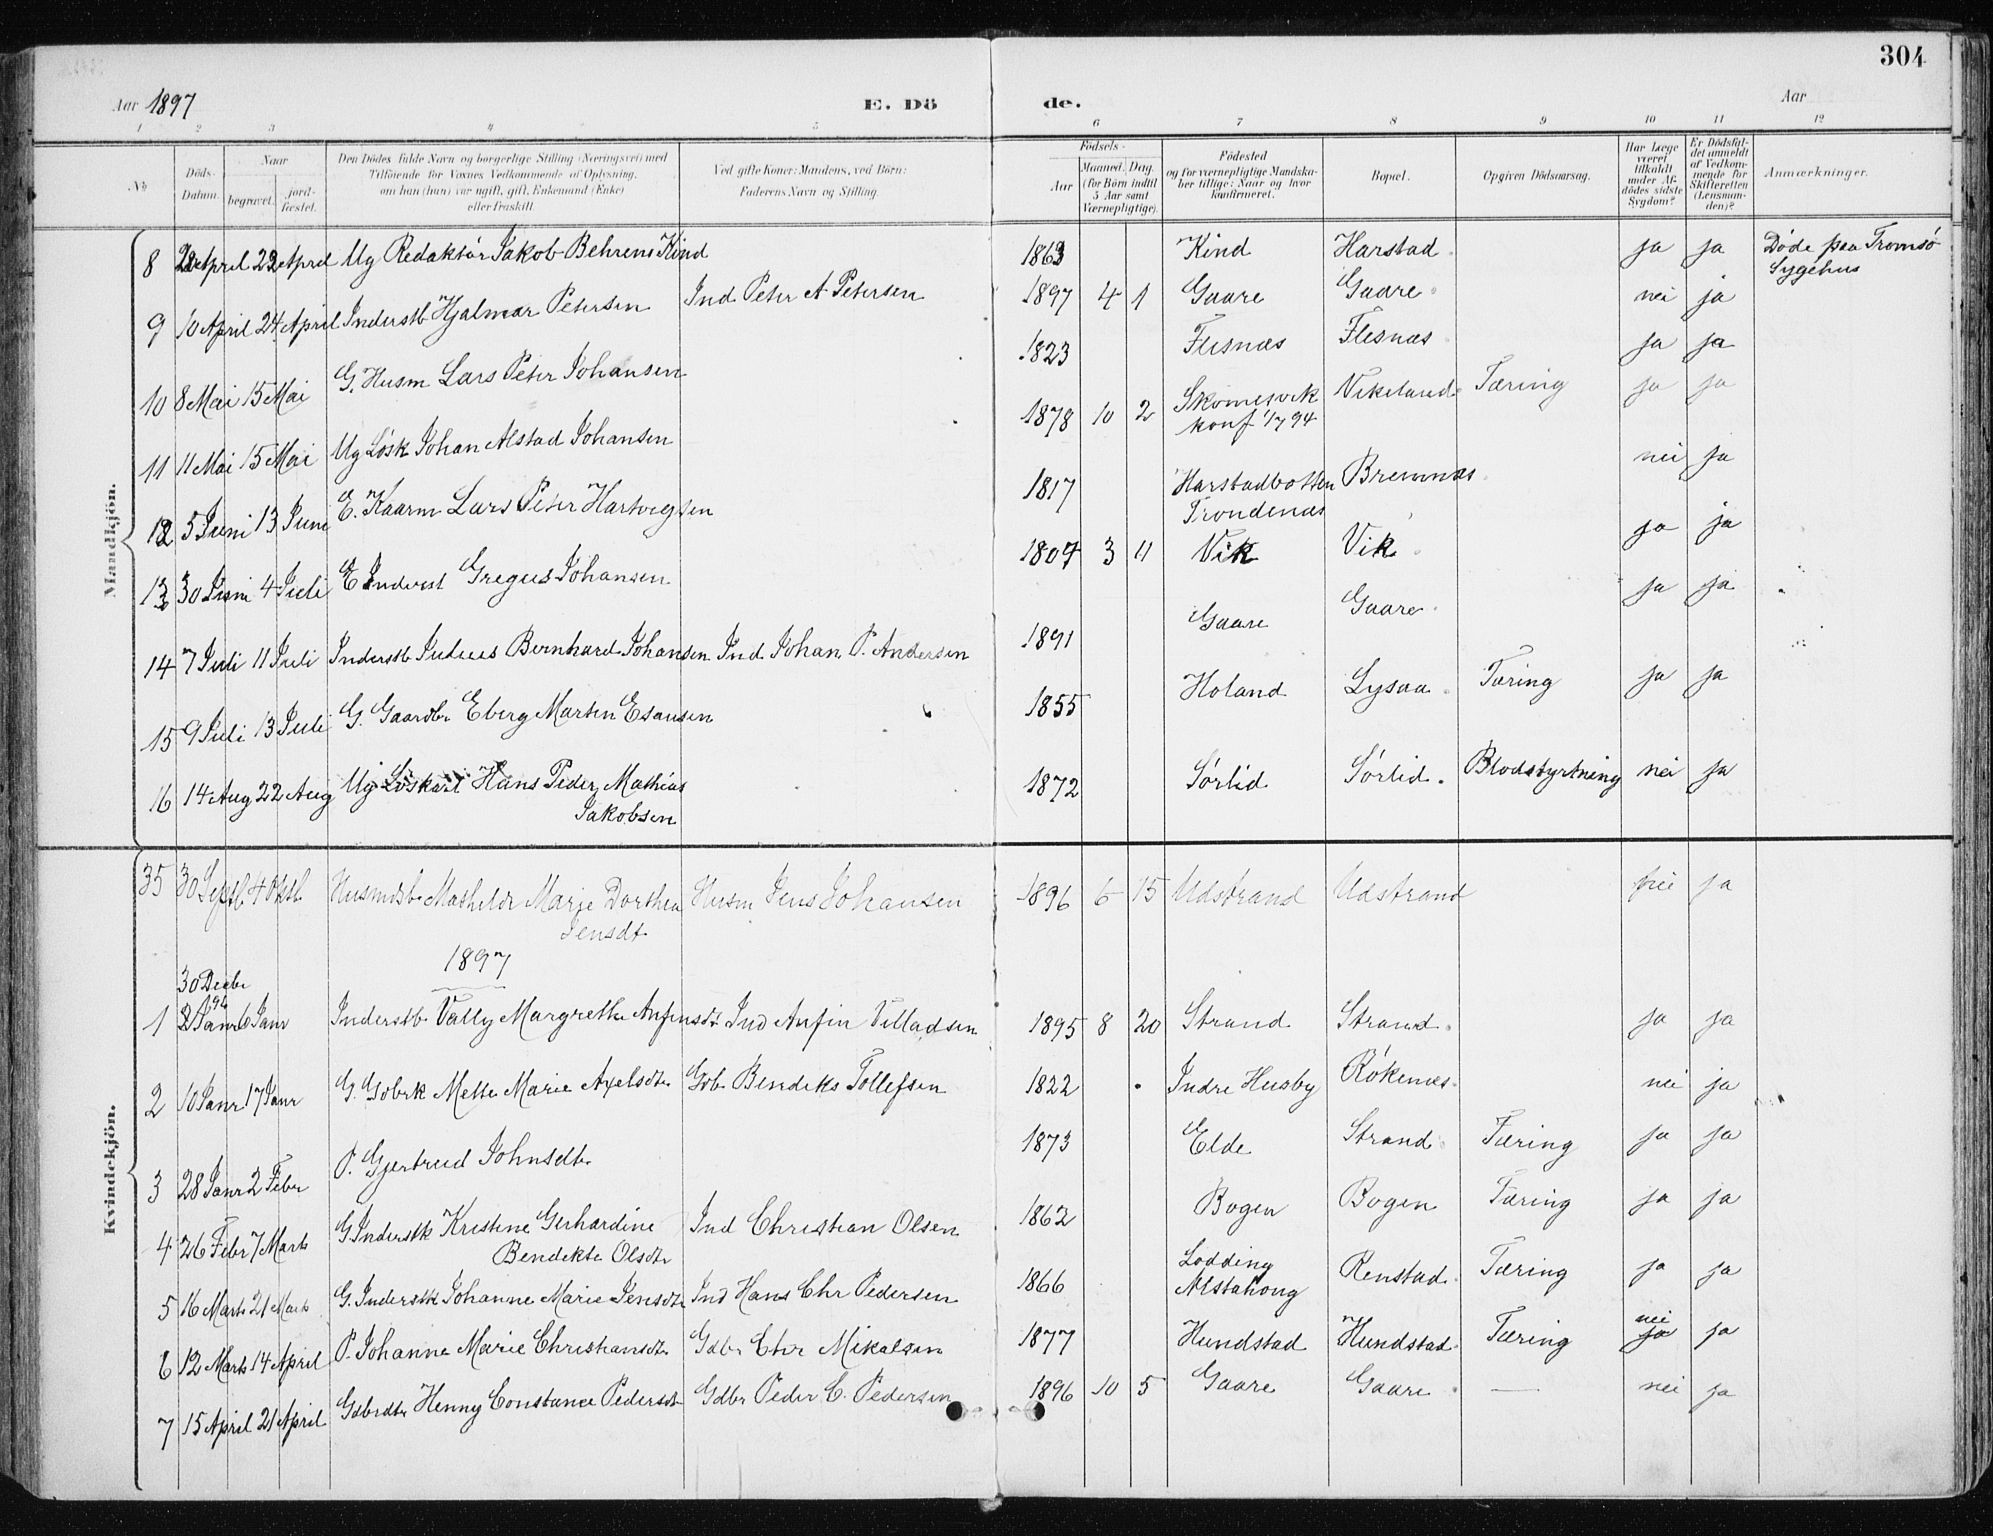 304
Aar 1897 E. Dö de. Aar
1 2 3 4 5 6 7 8 9 10 11 12
No Döds-Datum. Naar begravet. jordfæstet. Den Dödes fulde Navn og borgerlige Stilling (Næringsvei) med Tilföiende for Voxnes Vedkommende af Oplysning, om han (hun) var ugift, gift, Enkemand (Enke) eller fraskilt. Ved gifte Koner: Mandens, ved Börn: Faderens Navn og Stilling. Födsels- Aar Maaned. Dag. (for Börn indtil 5 Aar samt Værnepligtige). Födested og for værnepligtige Mandskaber tillige: Naar og hvor konfirmeret. Bopæl. Opgiven Dödsaarsag. Har Læge været tilkaldt under Afdödes sidste Sygdom? Er Dödsfaldet anmeldt af Vedkommende for Skifteretten (Lensmanden)? Anmærkninger.
Mandkjön.
8 April 22 April Ug Redaktør Jakob Behrens Kind 1863 Kind Harstad ja ja Døde paa Tromsø Sygehus
9 10 April 24 April Inderstb Hjalmar Petersen Ind Peter A Petersen 1897 4 1 Gaare Gaare nei ja
10 8 Mai 15 Mai G. Husm Lars Peter Johansen 1823 Flesnæs Flesnæs ja ja
11 11 Mai 15 Mai Ug Løsk Johan Alstad Johansen 1878 10 2 Skomesvik konf 94 Vikeland Tæring ja ja
12 5 Juni 13 Juni E. Kaarm Lars Peter Hartvigsen 1817 Harstadbotten Trondenæs Bremnæs nei ja
13 30 Juni 4 Juli E Inderst Gregus Johansen 1807 3 11 Vik Vik ja ja
14 7 Juli 11 Juli Inderstb Julius Bernhard Johansen Ind Johan P. Andersen 1891 Gaare Gaare ja ja
15 9 Juli 13 Juli G. Gaardbr Eberg Marten Esausen 1855 Holand Lysaa Tæring ja ja
16 14 Aug 22 Aug Ug Løskarl Hans Peder Mathias Jakobsen 1872 Sørlid Sørlid Blodstyrtning nei ja
Kvindekjön.
35 30 Septb 4 Oktb Husmdtr Mathilde Marie Dorthea Jensdt Husm Jens Johansen 1896 6 15 Udstrand Udstrand nei ja
1897
30 Decbr 96
1 Janr Janr Inderstb Vally Margrethe Anfinsdt Ind Anfin Villadsen 1895 8 20 Strand Strand ja ja
2 10 Janr 17 Janr G. Gdbrk Mette Marie Axelsdtr Gdb Bendiks Tollefsen 1822 Indre Husby Røkenæs nei ja
3 28 Janr 2 Febr P. Gjertrud Johnsdtr 1873 Elde Strand Tæring ja ja
4 26 Febr 7 Marts G Inderstk Kristine Gerhardine Bendikte Olsdtr Ind Christian Olsen 1862 Bogen Bogen Tæring ja ja
5 16 Marts 21 Marts G. Inderstk Johanne Marie Jensdtr Ind Hans Chr Pedersen 1866 Lodding Alstahoug Renstad Tæring ja ja
6 12 Marts 14 April P. Johanne Marie Christiansdtr Gdbr Chr Mikalsen 1877 Hundstad Hundstad Tæring nei ja ja
7 15 April 21 April Gdbrdtr Henny Constance Pedersdt Gdbr Peder C. Pedersen 1896 10 5 Gaare Gaare — nei ja